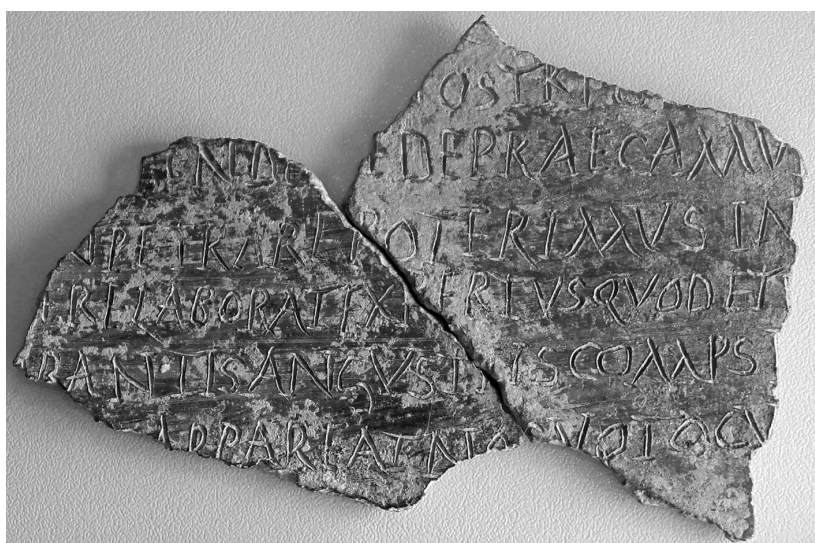 OSTRI
INDE EDEPRAECAMV
NPETRAREPOTERIMVSIN
RELABORATEXTERIVSQVODET
RANTESANCVSEPISCOMPS
APPAREAT